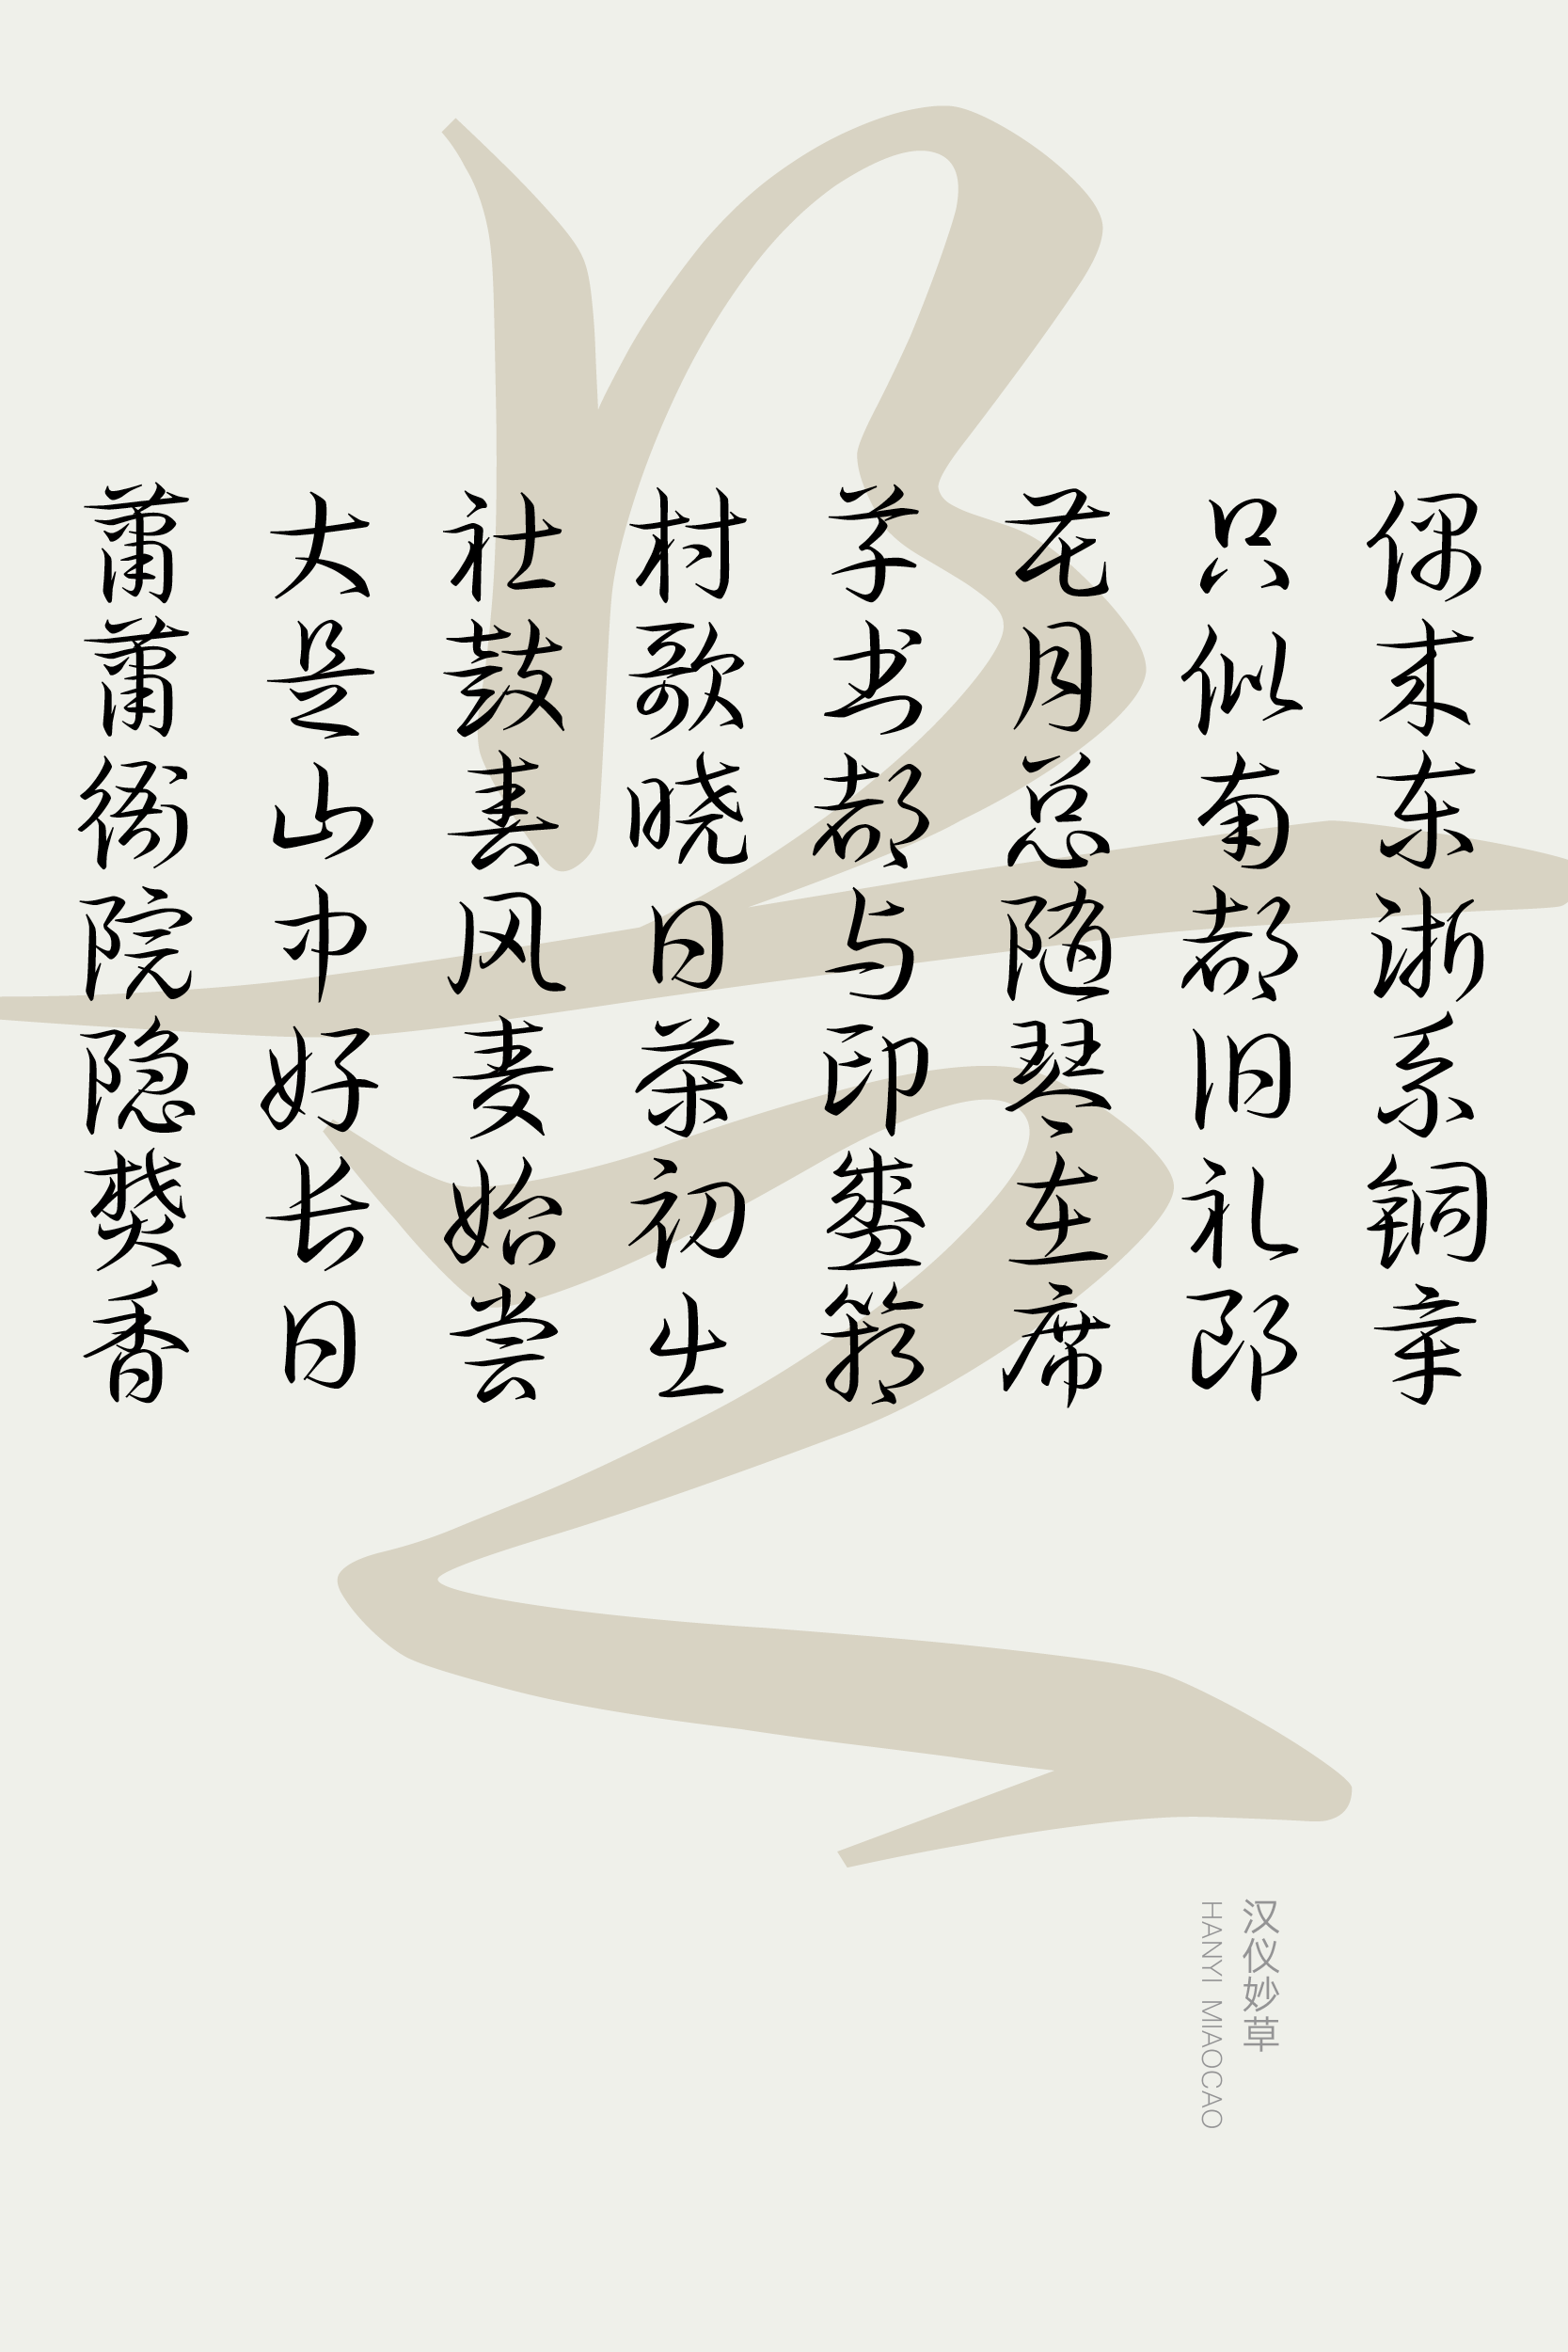 偶来东浙系铜章
只似南都旧礼郎
花月总随琴在席
草书都与印盛箱
村歌晓日茶初出
社鼓春风麦始尝
大是山中好长日
萧萧衙院隐焚香
汉仪妙草
HANYI MIAOCAO